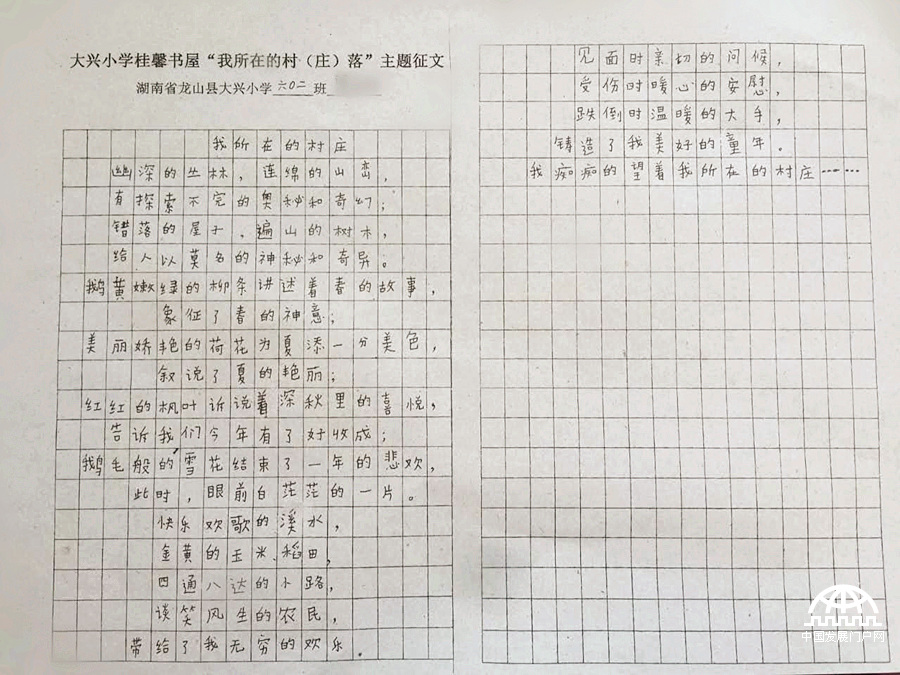 大兴小学桂馨书屋“我所在的村（庄）落”主题征文
湖南省龙山县大兴小学六〇二班
我所在的村庄
幽深的丛林，连绵的山峦，
有探索不完的奥秘和奇幻；
错落的屋子，遍山的树木，
给人以莫名的神秘和奇异。
鹅黄嫩绿的柳条讲述着春的故事，
象征了春的神意；
美丽娇艳的荷花为夏添一分美色，
叙说了夏的艳丽；
红红的枫叶诉说着深秋里的喜悦，
告诉我们今年有了好收成；
鹅毛般的雪花结束了一年的悲欢，
此时，眼前白茫茫的一片。
快乐欢歌的溪水，
金黄的玉米、稻田，
四通八达的小路，
谈笑风生的农民，
带给了我无穷的欢乐。
见面时亲切的问候，
受伤时暖心的安慰，
跌倒时温暖的大手，
铸造了我美好的童年。
我痴痴的望着我所在的村庄……
中国发展门户网